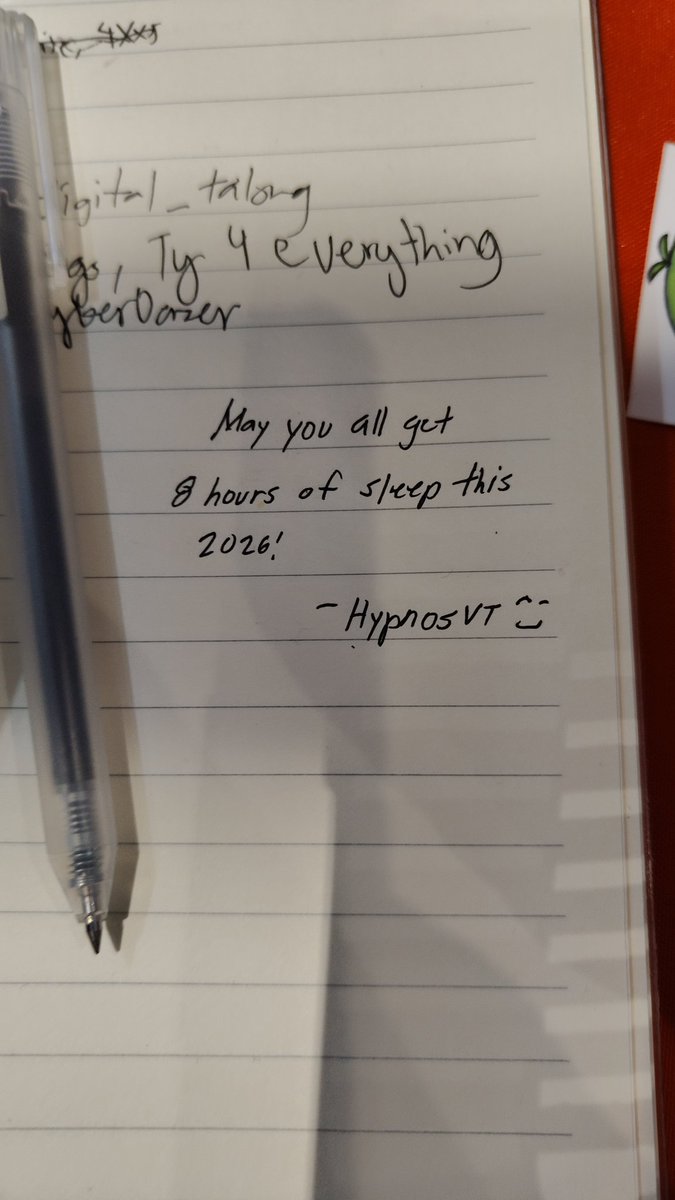 digital_talong
gs, Ty 4 everything
May you all get
8 hours of sleep this
2026!
- HypnosVT ^^